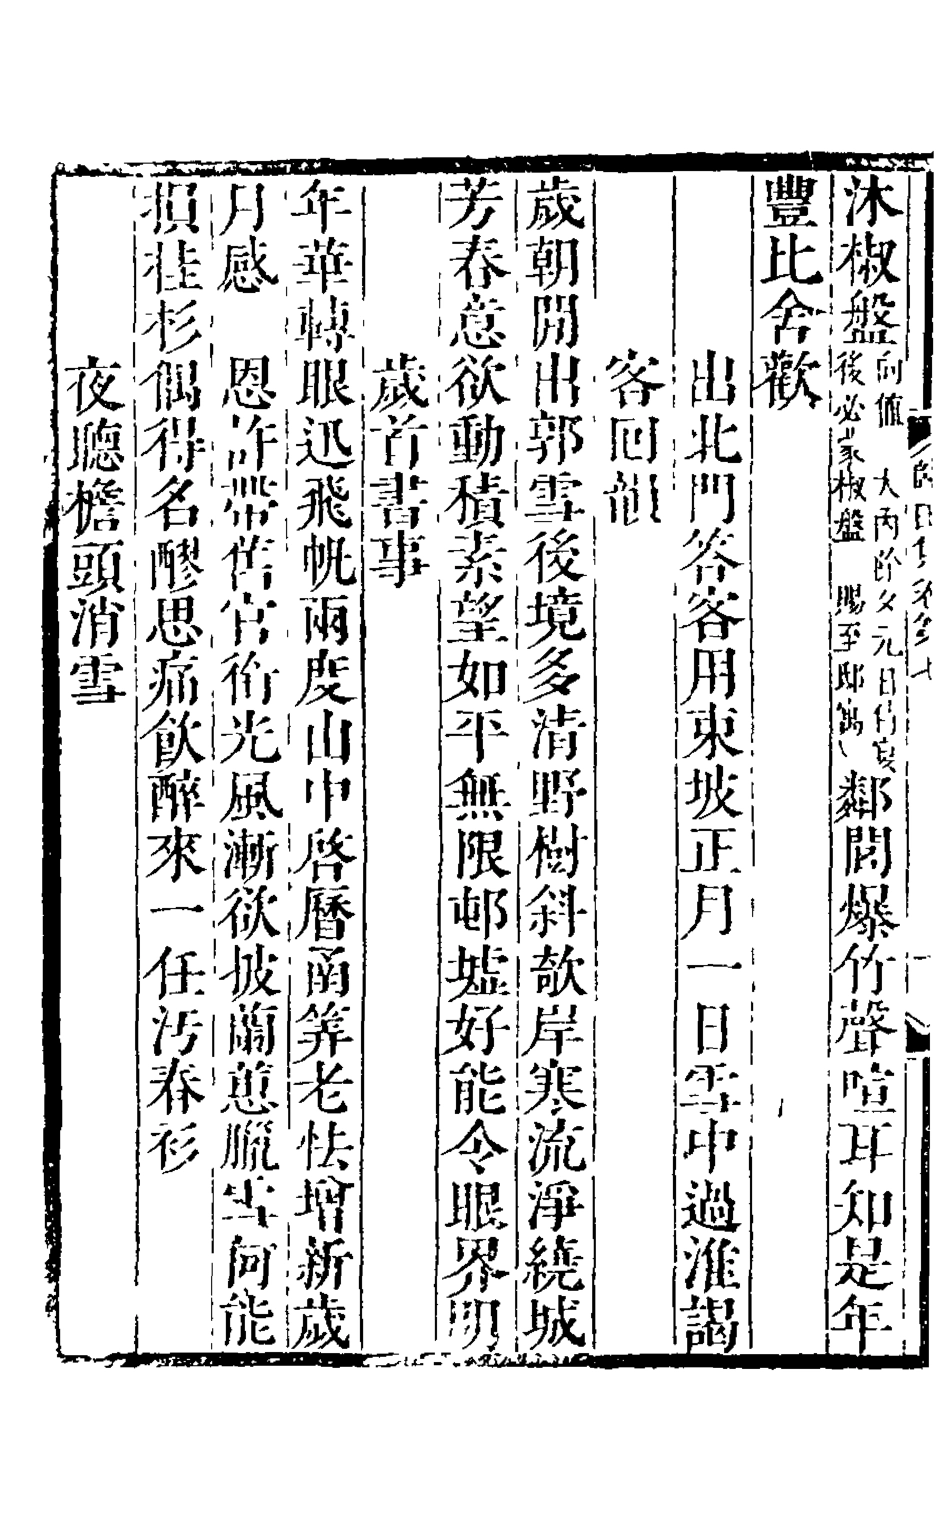 沐椒盤向值 大內除夕元日侍宴後必蒙椒盤 賜至邸寓鄰閭爆竹聲喧耳知是年
豐比舍歡
出北門答客用東坡正月一日雪中過淮謁
客回韻
歲朝開出郭雪後境多清野樹斜欹岸寒流淨繞城
芳春意欲動積素望如平無限邨墟好能令眼界明
歲首書事
年華轉眼迅飛帆兩度山中啓曆函筭老怯增新歲
月感 恩許帶舊官銜光風漸欲披蘭蕙臘雪何能
損桂杉偶得名醪思痛飲醉來一任汚春衫
夜聽檐頭消雪